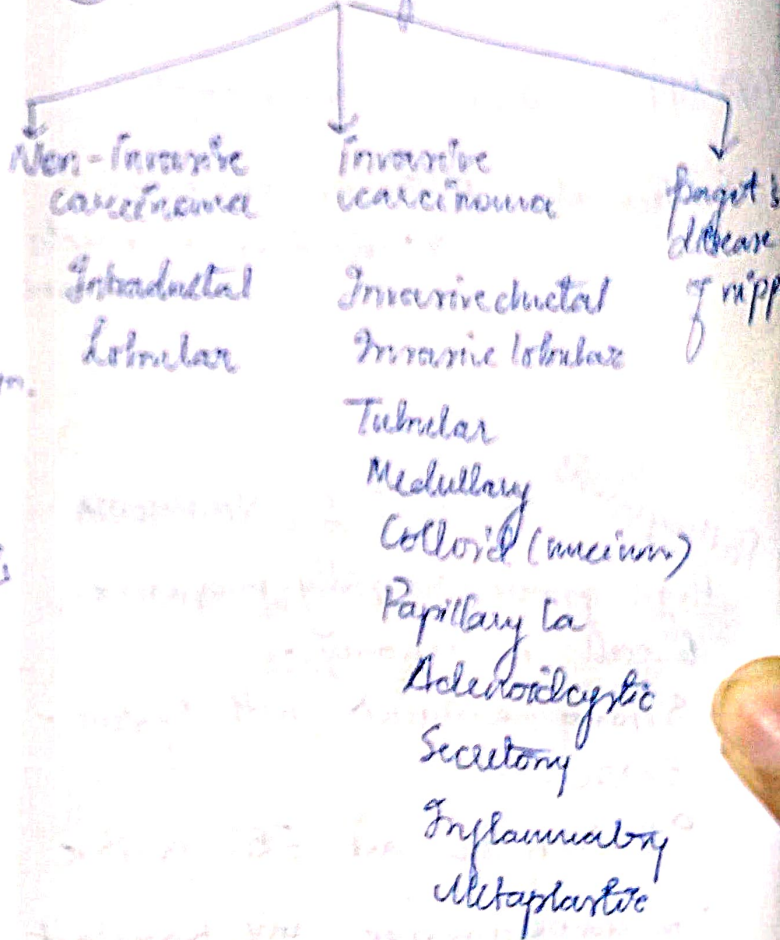 Non-Invasive
carcinoma
Intraductal
Lobular
Invasive
carcinoma
Invasive ductal
Invasive lobular
Tubular
Medullary
Colloid (mucinm)
Papillary Ca
Adenoidcystic
Secretory
Inflammatory
Metaplastic
Paget's
disease
of nipp